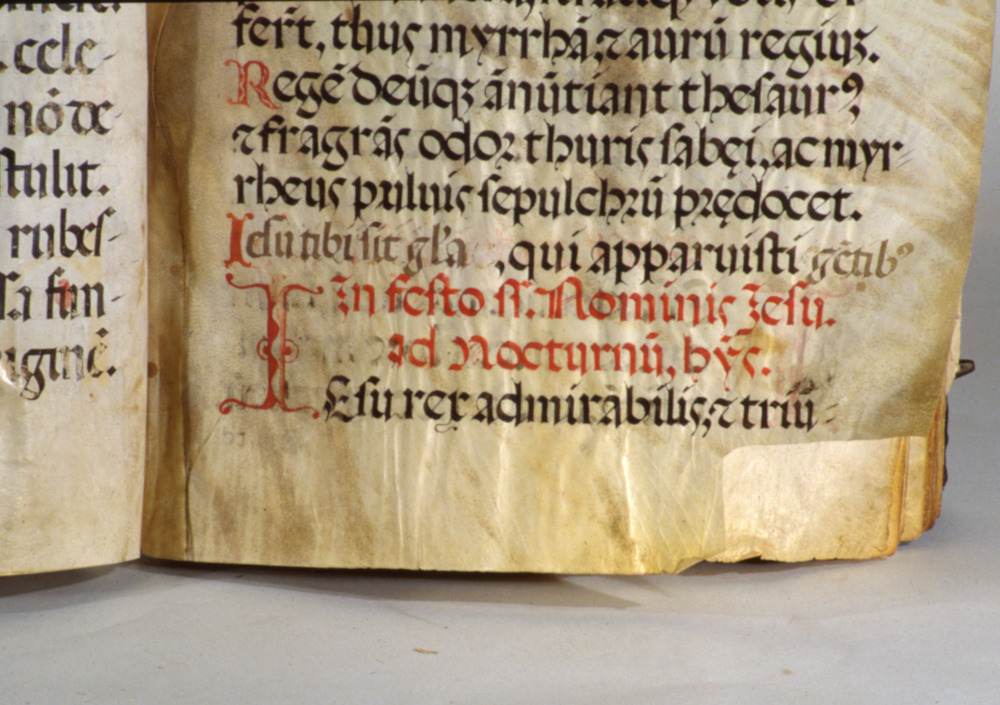 .ccle-
nō de-
stulit.
rubes-
s.i fun-
igine.
fert̄, thus myrrhā, ⁊ aurū regius.
Regē deūqȝ ānūtiant thesaurꝰ
⁊ fragrās odor thuris sabęi, ac myr-
rheus puluis sepulchrū prędocet.
Iesu tibi sit gl'a, qui apparuisti gētibꝰ
In festo ss. Nominis Iesu.
Ad Nocturnū, hȳs.
IEsu rex admirabilis, ⁊ triū-